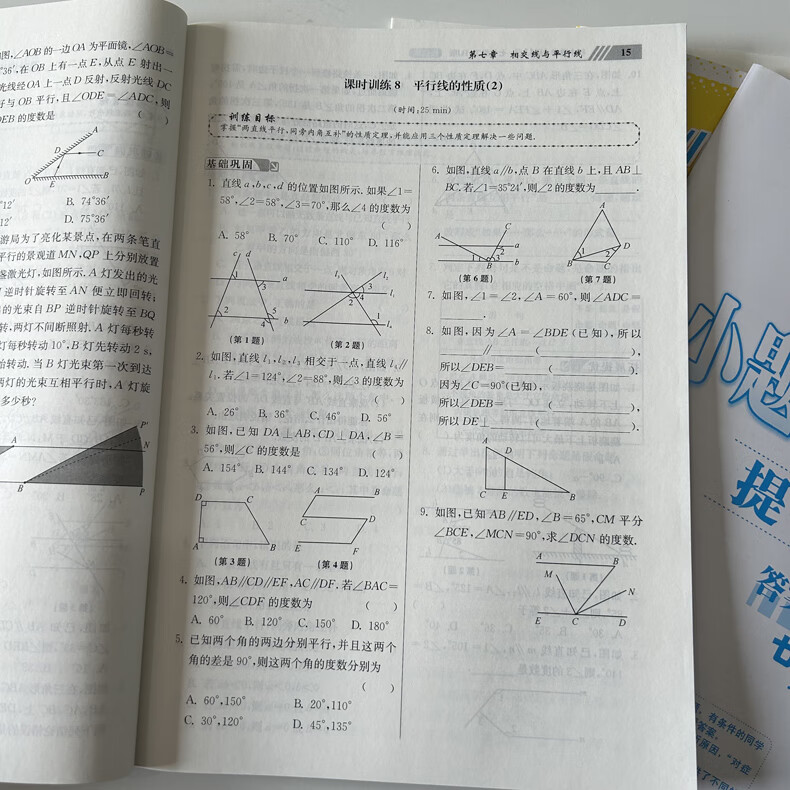 图,∠AOB 的一边 OA 为平面镜,∠AOB=
°36′,在 OB 上有一点 E,从点 E 射出一
光线经 OA 上一点 D 反射,反射光线 DC
好与 OB 平行,且∠ODE=∠ADC,则
DEB 的度数是 ( )
A
D
C
O
E
B
°12′ B. 74°36′
°12′ D. 75°36′
游局为了亮化某景点,在两条笔直
平行的景观道 MN,QP 上分别放置
激光灯,如图所示. A 灯发出的光
逆时针旋转至 AN 便立即回转;
的光束自 BP 逆时针旋转至 BQ
转,两灯不间断照射. A 灯每秒转
灯每秒转动 10°,B 灯先转动 2 s,
始转动. 当 B 灯光束第一次到达
两灯的光束互相平行时,A 灯旋
多少秒?
P′
A
N
B
P
第七章 相交线与平行线 15
课时训练 8 平行线的性质(2)
(时间:25 min)
训练目标
掌握“两直线平行,同旁内角互补”的性质定理,并能应用三个性质定理解决一些问题.
基础巩固
1. 直线 a,b,c,d 的位置如图所示. 如果∠1=
58°,∠2=58°,∠3=70°,那么∠4 的度数为
( )
A. 58° B. 70° C. 110° D. 116°
c d
1
3
a
2
4
5
b
(第 1 题)
l₂
l₃
2
3
4
l₁
1
l₄
(第 2 题)
2. 如图,直线 l₁,l₂,l₃ 相交于一点,直线 l₄∥
l₁. 若∠1=124°,∠2=88°,则∠3 的度数为
( )
A. 26° B. 36° C. 46° D. 56°
3. 如图,已知 DA⊥AB,CD⊥DA,∠B=
56°,则∠C 的度数是 ( )
A. 154° B. 144° C. 134° D. 124°
D C
A B
(第 3 题)
A B
C D
E F
(第 4 题)
4. 如图,AB∥CD∥EF,AC∥DF. 若∠BAC=
120°,则∠CDF 的度数为 ( )
A. 60° B. 120° C. 150° D. 180°
5. 已知两个角的两边分别平行,并且这两个
角的差是 90°,则这两个角的度数分别为
( )
A. 60°,150° B. 20°,110°
C. 30°,120° D. 45°,135°
6. 如图,直线 a∥b,点 B 在直线 b 上,且 AB⊥
BC. 若∠1=35°24′,则∠2 的度数为 .
C
A
2
a
1
3
b
B
(第 6 题)
A
D
1
2
B
C
(第 7 题)
7. 如图,∠1=∠2,∠A=60°,则∠ADC=
.
8. 如图,因为∠A=∠BDE(已知),所以
∥ ( ),
所以∠DEB= ( ).
因为∠C=90°(已知),
所以∠DEB= ( ),
所以 DE⊥ ( ).
A
D
C E B
9. 如图,已知 AB∥ED,∠B=65°,CM 平分
∠BCE,∠MCN=90°,求∠DCN 的度数.
A B
M
N
E C D
小题
提
答案
七
,有条件的同学
答案.
原因,“对症